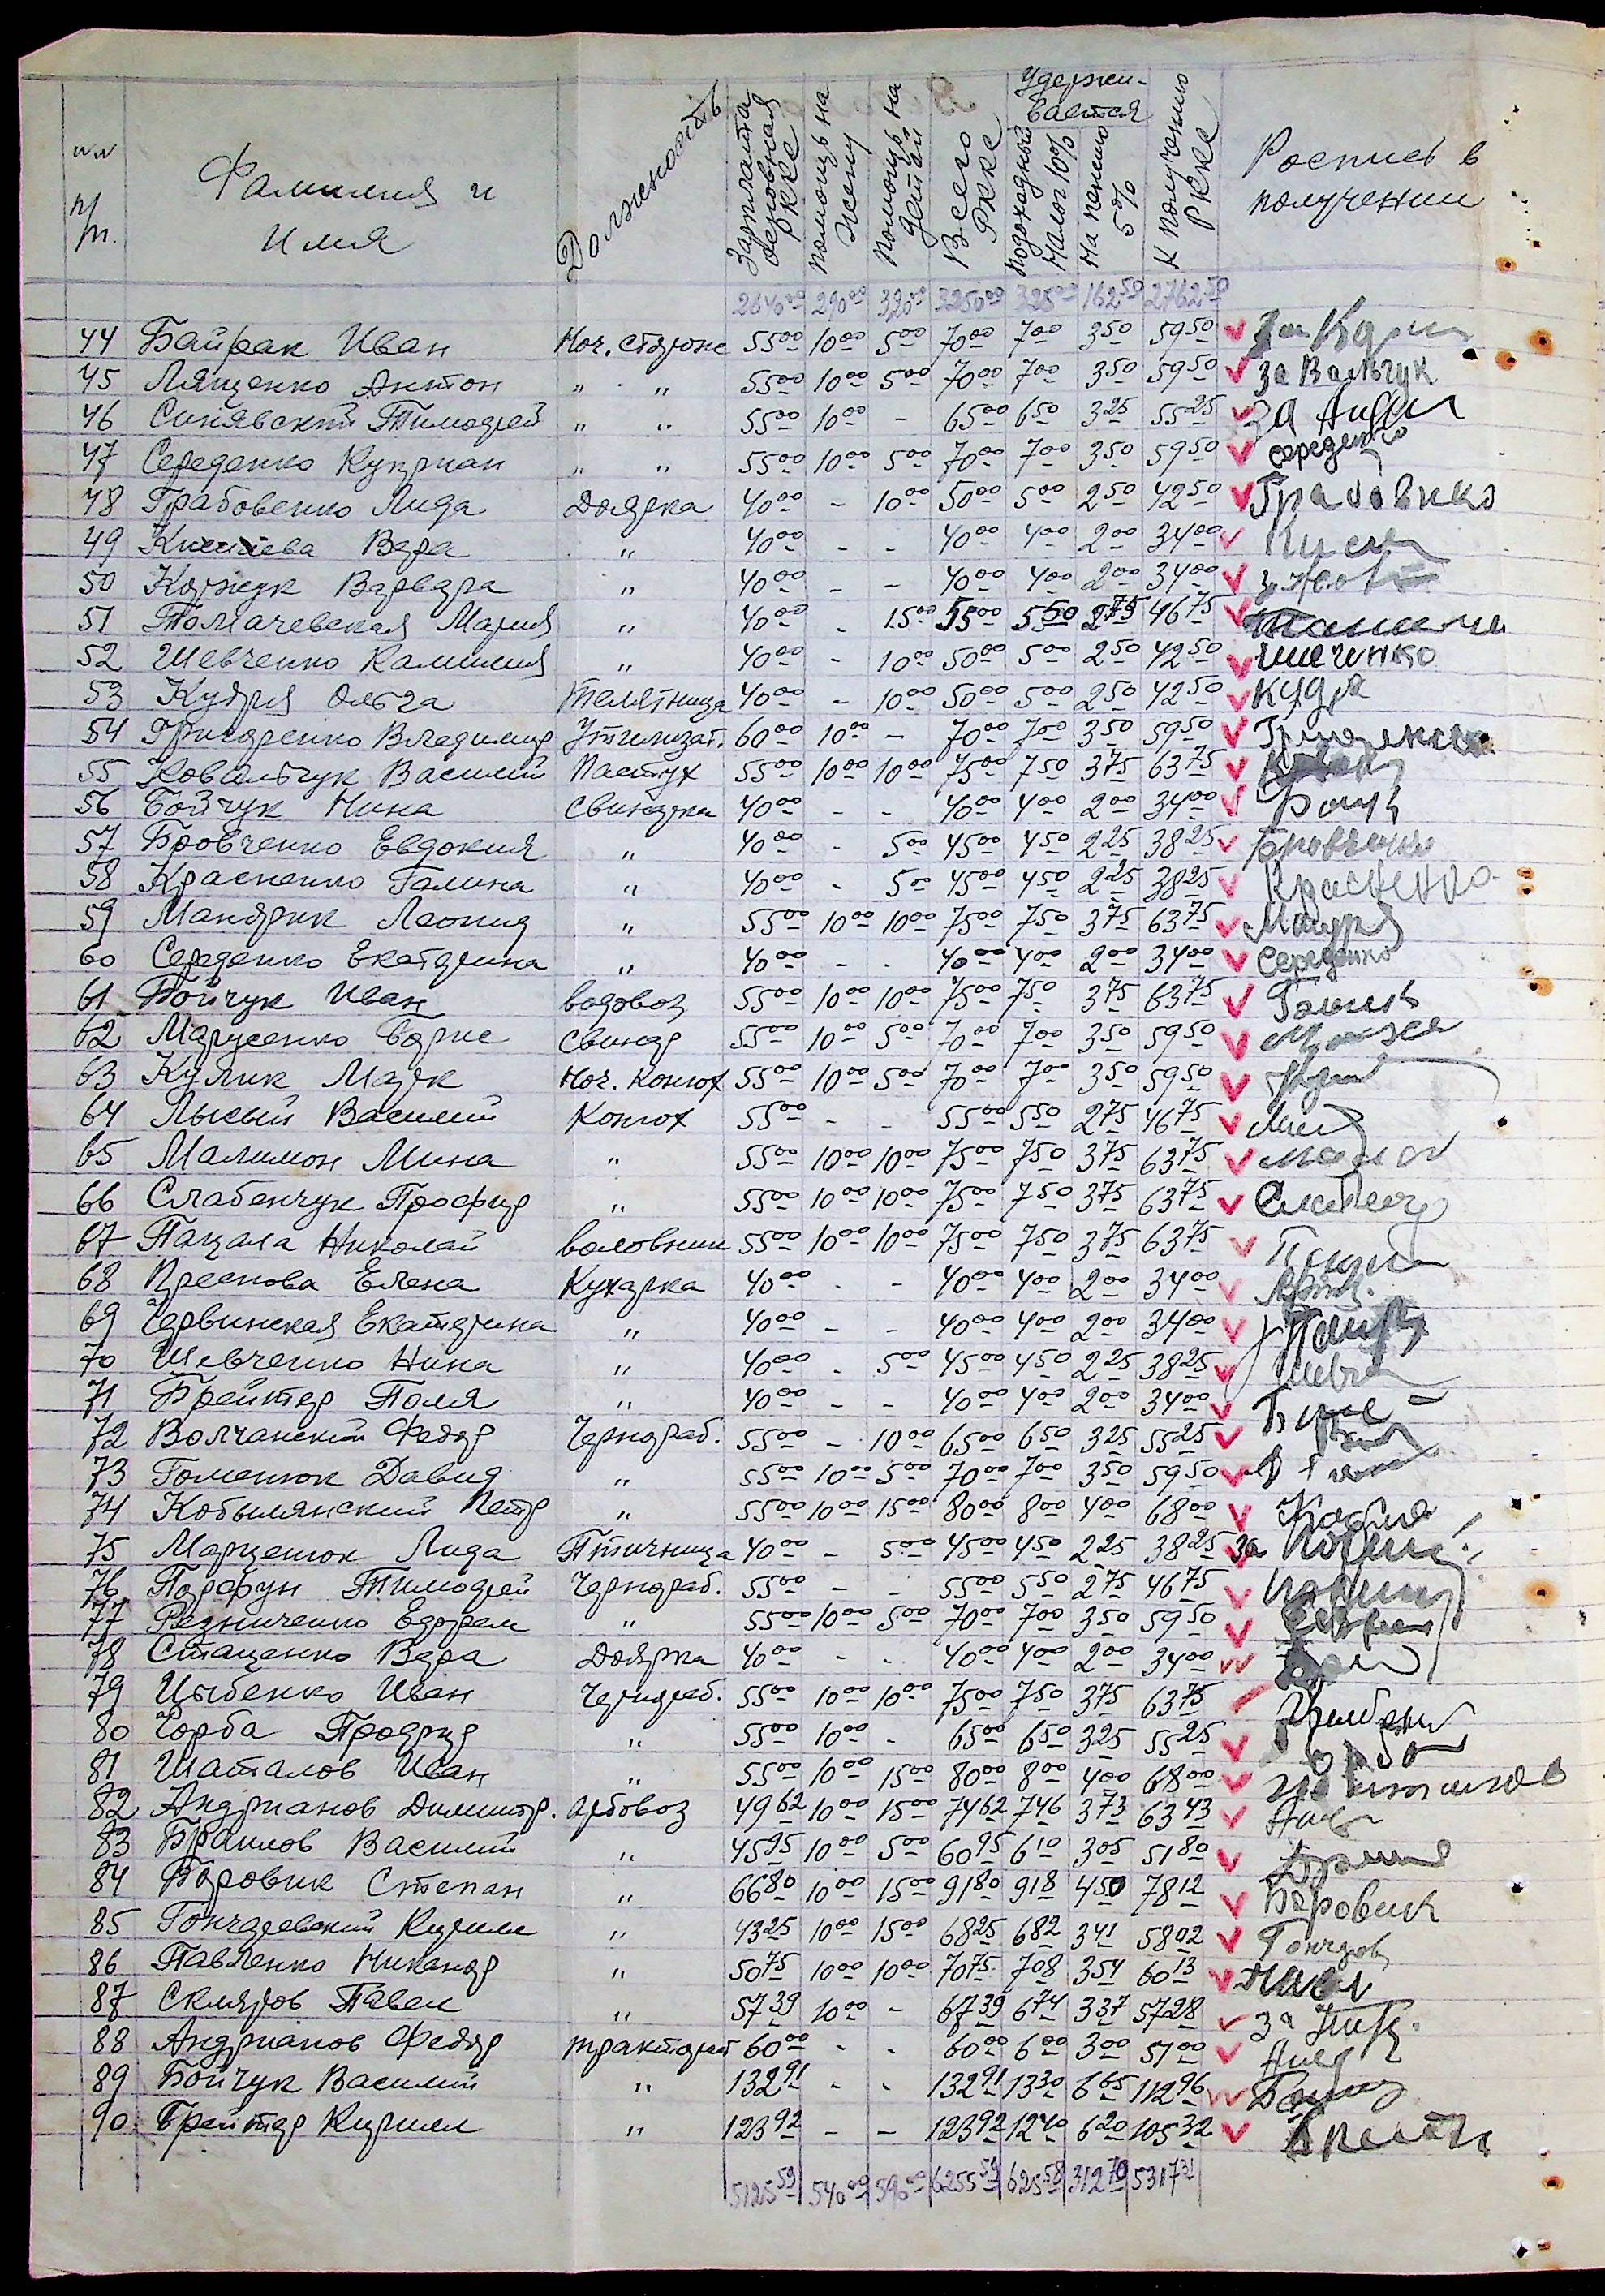 №№ п/п.
Фамилия и Имя
Должность
Зарплата основная РККС
Помощь на жену
Помощь на детей
Всего РККС
Удерживается
Подоходный налог 10%
На пенсию 5%
К получению РККС
Роспись в получении
2640 00 290 00 320 00 3250 00 325 00 162 50 2762 50
44 Байрак Иван Ноч. сторож 55 00 10 00 5 00 70 00 7 00 3 50 59 50 За
45 Лященко Антон " " 55 00 10 00 5 00 70 00 7 00 3 50 59 50 за Вальчук
46 Синявский Тимофей " " 55 00 10 00 - 65 00 6 50 3 25 55 25 за
47 Середенко Куприан " " 55 00 10 00 5 00 70 00 7 00 3 50 59 50 Середенко
48 Грабовенко Лида Доярка 40 00 - 10 00 50 00 5 00 2 50 42 50
49 Вера " 40 00 - - 40 00 4 00 2 00 34 00
50 Кожук Варвара " 40 00 - - 40 00 4 00 2 00 34 00
51 Толмачевская Мария " 40 00 - 15 00 55 00 5 50 2 75 46 75
52 Шевченко Камилия " 40 00 - 10 00 50 00 5 00 2 50 42 50
53 Кудря Ольга Телятница 40 00 - 10 00 50 00 5 00 2 50 42 50 Кудря
54 Григоренко Владимир Утилизат. 60 00 10 00 - 70 00 7 00 3 50 59 50
55 Ковальчук Василий Пастух 55 00 10 00 10 00 75 00 7 50 3 75 63 75
56 Бойчук Нина Свинарка 40 00 - - 40 00 4 00 2 00 34 00
57 Бровченко Евдокия " 40 00 - 5 00 45 00 4 50 2 25 38 25 Бровченко
58 Красненко Галина " 40 00 - 5 00 45 00 4 50 2 25 38 25 Красненко
59 Мандрик Леонид " 55 00 10 00 10 00 75 00 7 50 3 75 63 75
60 Середенко Екатерина " 40 00 - - 40 00 4 00 2 00 34 00 Середенко
61 Бойчук Иван водовоз 55 00 10 00 10 00 75 00 7 50 3 75 63 75
62 Марусенко Борис Свинар 55 00 10 00 5 00 70 00 7 00 3 50 59 50
63 Кулик Марк Ноч. конюх 55 00 10 00 5 00 70 00 7 00 3 50 59 50
64 Лысый Василий Конюх 55 00 - - 55 00 5 50 2 75 46 75
65 Малимон Мина " 55 00 10 00 10 00 75 00 7 50 3 75 63 75
66 Слабенчук Профир " 55 00 10 00 10 00 75 00 7 50 3 75 63 75
67 Пацала Николай воловник 55 00 10 00 10 00 75 00 7 50 3 75 63 75
68 Преснова Елена Кухарка 40 00 - - 40 00 4 00 2 00 34 00
69 Червинская Екатерина " 40 00 - - 40 00 4 00 2 00 34 00
70 Шевченко Нина " 40 00 - 5 00 45 00 4 50 2 25 38 25
71 Брейтер Поля " 40 00 - - 40 00 4 00 2 00 34 00
72 Волчанский Федор Чернораб. 55 00 - 10 00 65 00 6 50 3 25 55 25
73 Гоменюк Давид " 55 00 10 00 5 00 70 00 7 00 3 50 59 50
74 Кобылянский Петр " 55 00 10 00 15 00 80 00 8 00 4 00 68 00
75 Марценюк Лида Птичница 40 00 - 5 00 45 00 4 50 2 25 38 25 За
76 Порфун Тимофей Чернораб. 55 00 - - 55 00 5 50 2 75 46 75
77 Резниченко Ефрем " 55 00 10 00 5 00 70 00 7 00 3 50 59 50
78 Стаценко Вера Доярка 40 00 - - 40 00 4 00 2 00 34 00
79 Цыбенко Иван Чернораб. 55 00 10 00 10 00 75 00 7 50 3 75 63 75
80 Чорба Профир " 55 00 10 00 - 65 00 6 50 3 25 55 25
81 Шаталов Иван " 55 00 10 00 15 00 80 00 8 00 4 00 68 00
82 Андрианов Димитр. арбовоз 49 62 10 00 15 00 74 62 7 46 3 73 63 43
83 Браилов Василий " 45 95 10 00 5 00 60 95 6 10 3 05 51 80
84 Боровик Степан " 66 80 10 00 15 00 91 80 9 18 4 50 78 12 Боровик
85 Гончаревский Кирилл " 43 25 10 00 15 00 68 25 6 82 3 41 58 02
86 Павленко Никанор " 50 75 10 00 10 00 70 75 7 08 3 54 60 13
87 Скляров Павел " 57 39 10 00 - 67 39 6 74 3 37 57 28 за
88 Андрианов Федор тракторист 60 00 - - 60 00 6 00 3 00 51 00
89 Бойчук Василий " 132 91 - - 132 91 13 30 6 65 112 96
90 Брейтер Кирилл " 123 92 - - 123 92 12 40 6 20 105 32
5125 59 540 00 590 00 6255 59 625 58 312 70 5317 31